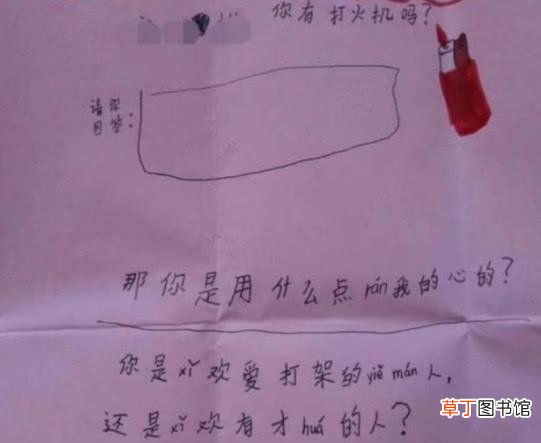 你有打火机吗?
请你
回答:
那你是用什么点rán我的心的?
你是xǐ欢爱打架的yiě mán人,
还是xǐ欢有才huá的人?
草丁图书馆